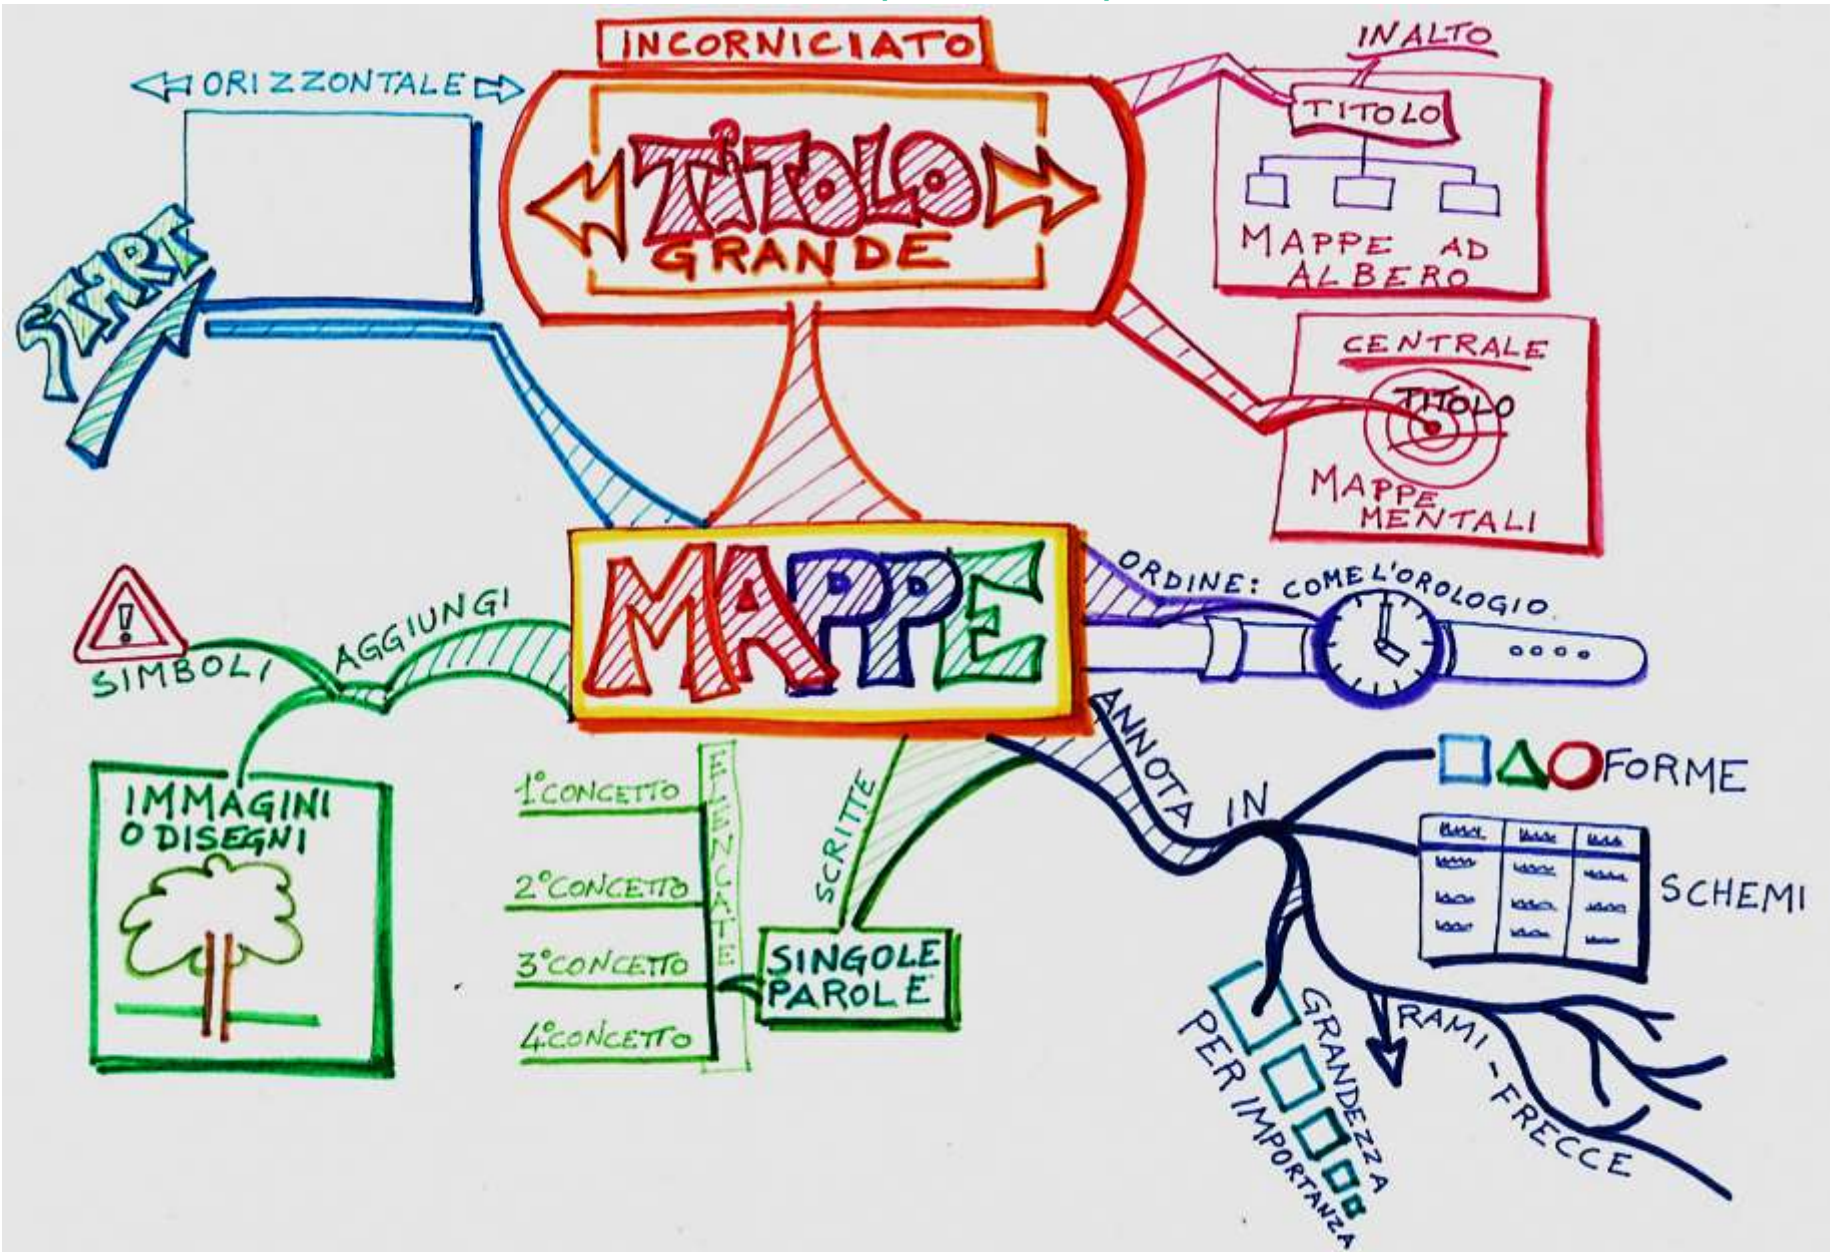 ORIZZONTALE
START
INCORNICIATO
TITOLO
GRANDE
IN ALTO
TITOLO
MAPPE AD
ALBERO
CENTRALE
TITOLO
MAPPE
MENTALI
MAPPE
ORDINE: COME L'OROLOGIO
ANNOTA IN
FORME
SCHEMI
RAMI - FRECCE
GRANDEZZA
PER IMPORTANZA
SCRITTE
SINGOLE
PAROLE
ELENCATE
1° CONCETTO
2° CONCETTO
3° CONCETTO
4° CONCETTO
AGGIUNGI
!
SIMBOLI
IMMAGINI
O DISEGNI